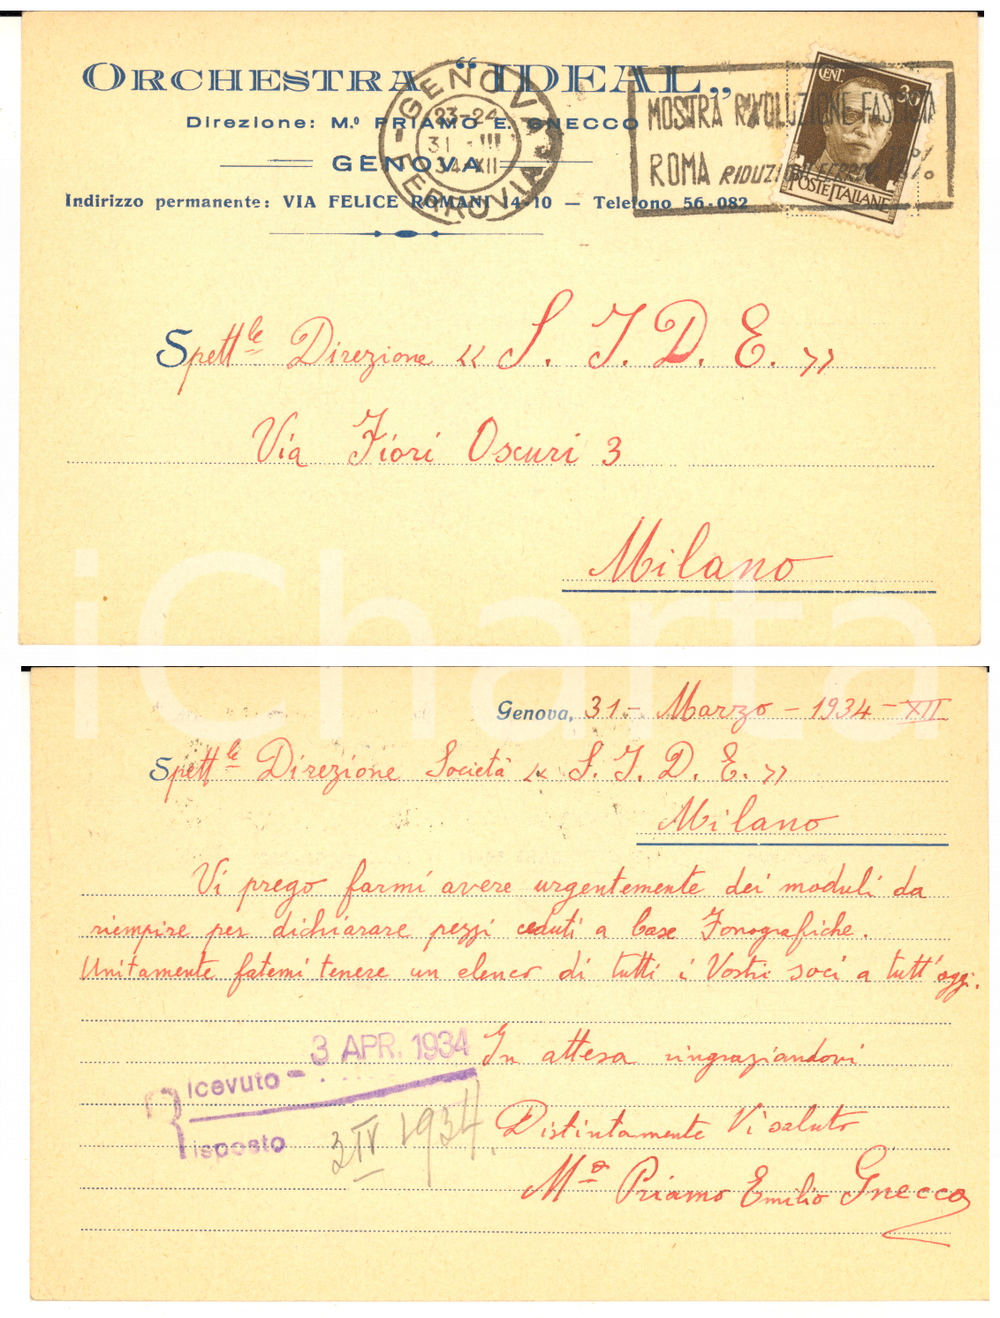 ORCHESTRA "IDEAL„
Direzione: M.º PRIAMO E. GNECCO
GENOVA
Indirizzo permanente: VIA FELICE ROMANI 14-10 — Telefono 56-082
GENOVA FERROVIA
23-24
31 · III
34 XII
MOSTRA RIVOLUZIONE FASCISTA
ROMA RIDUZI
CENT. 30
POSTE ITALIANE
Spett.le Direzione « S. I. D. E. »
Via Fiori Oscuri 3
Milano
Genova, 31 - Marzo - 1934 - XII
Spett.le Direzione Società « S. I. D. E. »
Milano
Vi prego farmi avere urgentemente dei moduli da
riempire per dichiarare pezzi ceduti a base Fonografiche.
Unitamente fatemi tenere un elenco di tutti i Vostri soci a tutt'oggi.
In attesa ringraziandovi
Distintamente Vi saluto
Mº Priamo Emilio Gnecco
Ricevuto - 3 APR. 1934
Risposto 3 IV 1934
iCharta